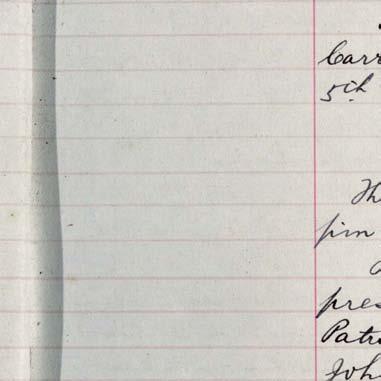 Carr
5th
Th
pim
pres
Patri
Joh